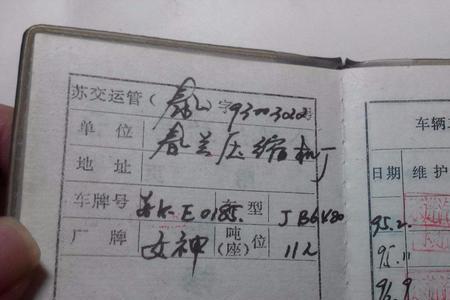 苏交运管(泰)字93003022号
单位 春兰压缩机厂
地址
车牌号 苏K.E0185. 车型 JB6480
厂牌 女神 吨(座)位 11座
车辆
日期 维护
95.2.
95.11
96.9